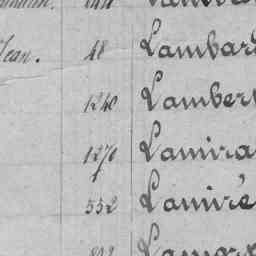 Jean. 48 Lambar
1240 Lambert
1270 Lamira
552 Lamiré